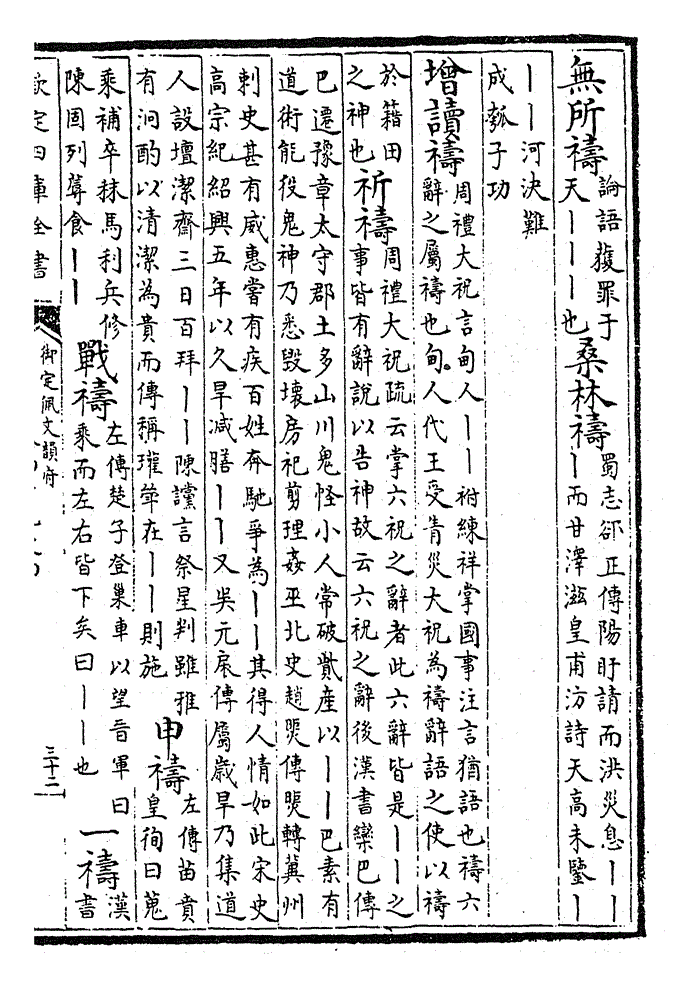 無所禱論語獲罪于天丨丨丨也桑林禱蜀志郤正傳陽盱請而洪災息丨丨丨而甘澤滋皇甫汸詩天高未鑒丨
丨丨河決難成瓠子功
增讀禱周禮大祝言甸人丨丨祔練祥掌國事注言猶語也禱六辭之屬禱也甸人代王受眚災大祝為禱辭語之使以禱
於籍田之神也祈禱周禮大祝疏云掌六祝之辭者此六辭皆是丨丨之事皆有辭說以告神故云六祝之辭後漢書欒巴傳
巴遷豫章太守郡土多山川鬼怪小人常破貲產以丨丨巴素有道術能役鬼神乃悉毀壞房祀剪理姦巫北史趙煚傳煚轉冀州
刺史甚有威惠嘗有疾百姓奔馳爭為丨丨其得人情如此宋史高宗紀紹興五年以久旱減膳丨丨又吳元扆傳屬歲旱乃集道
人設壇潔齋三日百拜丨丨陳讜言祭星判雖推有泂酌以清潔為貴而傳稱瓘斝在丨丨則施申禱左傳苗賁皇徇曰蒐
乘補卒秣馬利兵修陳固列蓐食丨丨戰禱左傳楚子登巢車以望晉軍曰乘而左右皆下矣曰丨丨也一禱漢書
欽定四庫全書
御定佩文韻府
三十二